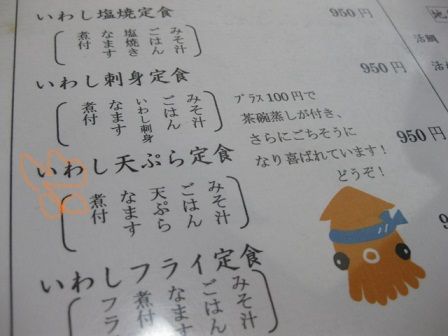 いわし塩焼定食 950円
みそ汁
ごはん
塩焼き
なます
煮付
いわし刺身定食 950円
みそ汁
ごはん
いわし刺身
なます
煮付
プラス100円で
茶碗蒸しが付き、
さらにごちそうに
なり喜ばれています!
どうぞ!
いわし天ぷら定食 950円
みそ汁
ごはん
天ぷら
なます
煮付
いわしフライ定食
みそ汁
ごはん
なます
煮付
フラ
活鯛
活